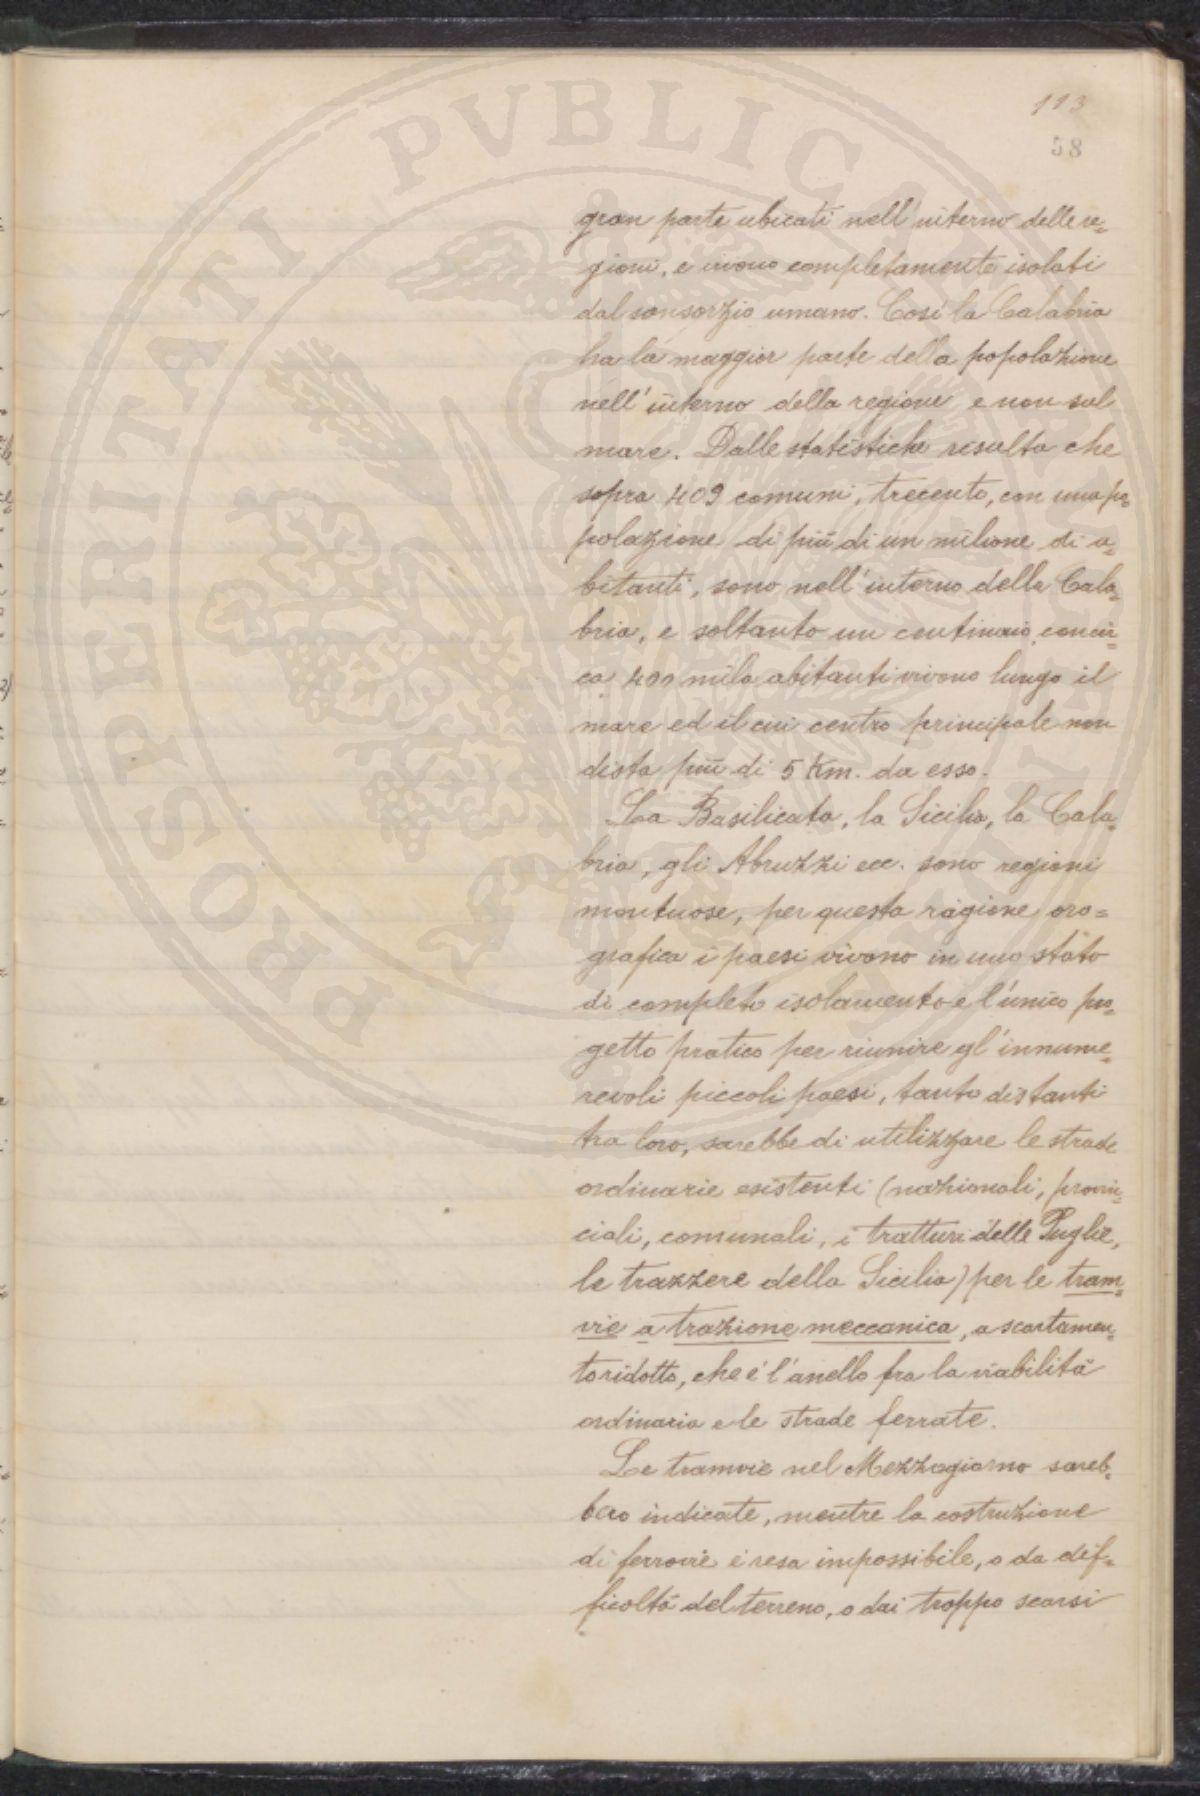 113
58
PROSPERITATI PVBLICAE
gran parte ubicati nell'interno delle re=
gioni, e vivono completamente isolati
dal sonsorzio umano. Così la Calabria
ha la maggior parte della popolazione
nell'interno della regione e non sul
mare. Dalle statistiche risulta che
sopra 409 comuni, trecento, con una po=
polazione di più di un milione di a=
bitanti, sono nell'interno della Cala=
bria, e soltanto un centinaio, con cir=
ca 400 mila abitanti vivono lungo il
mare ed il cui centro principale non
dista più di 5 Km. da esso.
La Basilicata, la Sicilia, la Cala=
bria, gli Abruzzi ecc. sono regioni
montuose, per questa ragione oro=
grafica i paesi vivono in uno stato
di completo isolamento e l'unico pro=
getto pratico per riunire gl'innume=
revoli piccoli paesi, tanto distanti
tra loro, sarebbe di utilizzare le strade
ordinarie esistenti (nazionali, provin=
ciali, comunali, i tratturi delle Puglie,
le trazzere della Sicilia) per le tram=
vie a trazione meccanica, a scartamen=
to ridotto, che è l'anello fra la viabilità
ordinaria e le strade ferrate.
Le tramvie nel Mezzogiorno sareb=
bero indicate, mentre la costruzione
di ferrovie è resa impossibile, o da dif=
ficoltà del terreno, o dai troppo scarsi